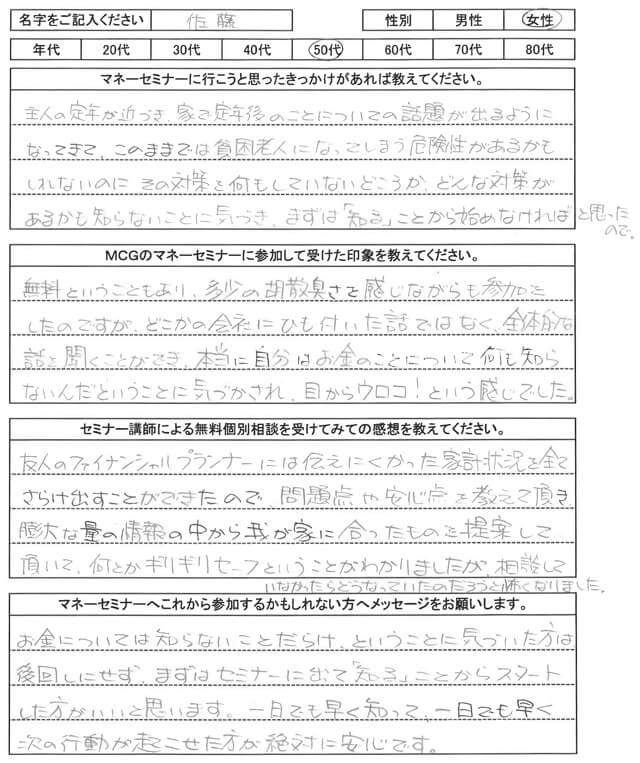 名字をご記入ください 佐藤 性別 男性 女性
年代 20代 30代 40代 50代 60代 70代 80代
マネーセミナーに行こうと思ったきっかけがあれば教えてください。
主人の定年が近づき、家で定年後のことについての話題が出るように
なってきて、このままでは貧困老人になってしまう危険性があるかも
しれないのに その対策を何もしていないどころか、どんな対策が
あるかも知らないことに気づき、まずは「知る」ことから始めなければと思った
ので。
MCGのマネーセミナーに参加して受けた印象を教えてください。
無料ということもあり、多少の胡散臭さを感じながらも参加を
したのですが、どこかの会社にひも付いた話ではなく、全体的な
話を聞くことができ、本当に自分はお金のことについて何も知ら
ないんだということに気づかされ、目からウロコ！という感じでした。
セミナー講師による無料個別相談を受けてみての感想を教えてください。
友人のファイナンシャルプランナーには伝えにくかった家計状況を全て
さらけ出すことができたので、問題点や安心点を教えて頂き、
膨大な量の情報の中から我が家に合ったものを提案して
頂いて、何とかギリギリセーフということがわかりましたが、相談して
いなかったらどうなっていたのだろうと怖くなりました。
マネーセミナーへこれから参加するかもしれない方へメッセージをお願いします。
お金については知らないことだらけ、ということに気づいた方は
後回しにせず、まずはセミナーに出て「知る」ことからスタート
した方がいいと思います。一日でも早く知って、一日でも早く
次の行動が起こせた方が絶対に安心です。